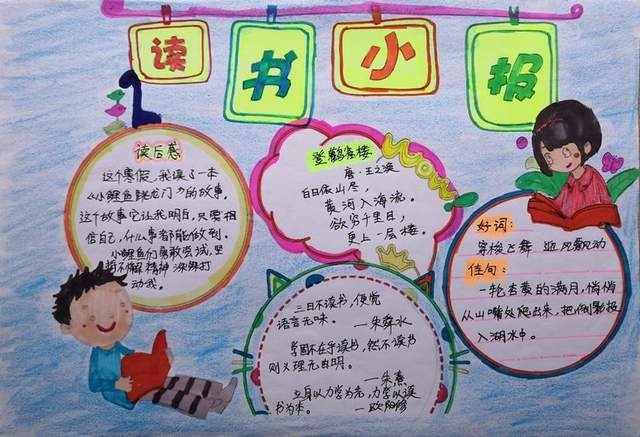 读书小报
读后感
这个寒假,我读了一本
《小鲤鱼跳龙门》的故事。
这个故事它让我明白,只要相
信自己,什么事都能做到。
小鲤鱼们勇敢尝试,坚
持不懈精神深深打
动我。
登鹳雀楼
唐·王之涣
白日依山尽,
黄河入海流。
欲穷千里目,
更上一层楼。
三日不读书,便觉
语言无味。 —朱舜水
学固不在乎读书,然不读书
则义理无由明。
—朱熹
立身以力学为先,力学以读
书为本。 —欧阳修
好词:
穿梭飞舞 迎风飘动
佳句:
一轮杏黄的满月,悄悄
从山嘴处爬出来,把倒影投
入湖水中。